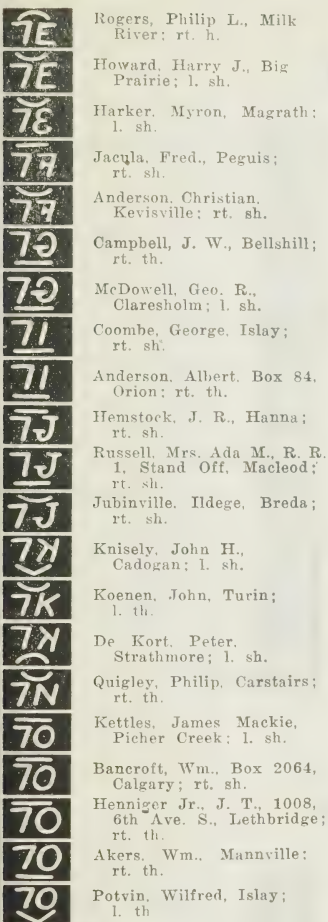 7E
Rogers, Philip L., Milk
River; rt. h.
7E
Howard, Harry J., Big
Prairie; l. sh.
Harker. Myron, Magrath;
l. sh.
Jacula, Fred., Peguis;
rt. sh.
Anderson, Christian,
Kevisville; rt. sh.
Campbell, J. W., Bellshill;
rt. th.
McDowell, Geo. R.,
Claresholm; l. sh.
7I
Coombe, George, Islay;
rt. sh.
7I
Anderson, Albert, Box 84,
Orion; rt. th.
7J
Hemstock, J. R., Hanna;
rt. sh.
7J
Russell, Mrs. Ada M., R. R.
1, Stand Off, Macleod;
rt. sh.
7J
Jubinville. Ildege, Breda;
rt. sh.
Knisely, John H.,
Cadogan; l. sh.
7K
Koenen, John, Turin;
l. th.
De Kort, Peter,
Strathmore; l. sh.
7N
Quigley, Philip, Carstairs;
rt. th.
7O
Kettles, James Mackie,
Picher Creek; l. sh.
7O
Bancroft, Wm., Box 2064,
Calgary; rt. sh.
7O
Henniger Jr., J. T., 1008,
6th Ave. S., Lethbridge;
rt. th.
7O
Akers, Wm., Mannville;
rt. th.
7O
Potvin, Wilfred, Islay;
l. th